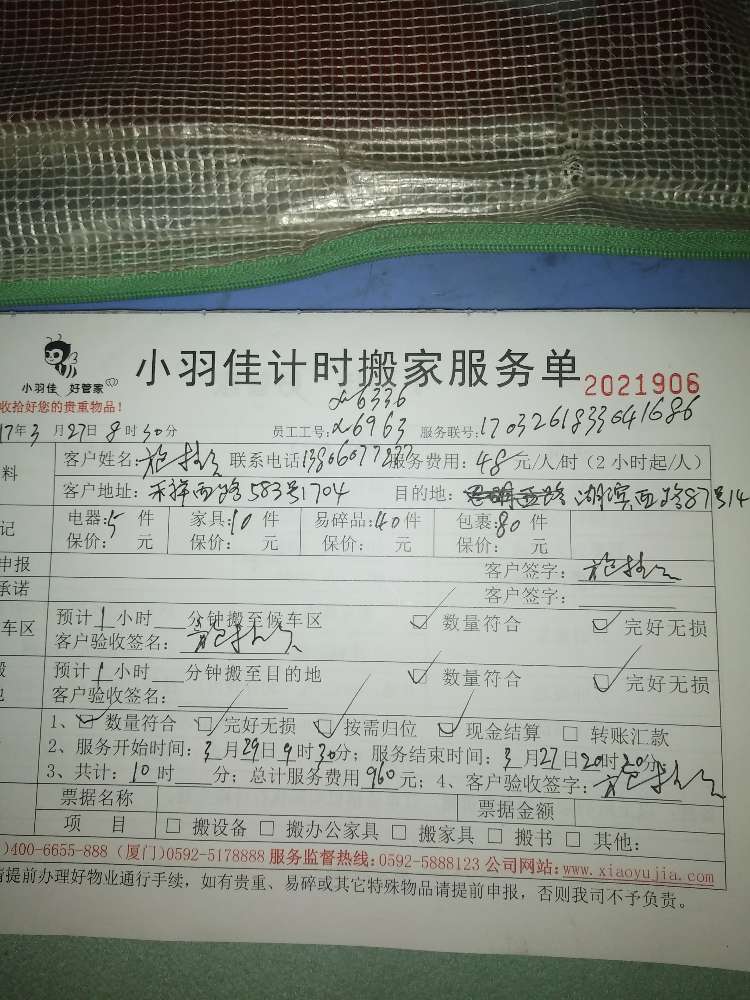 小羽佳 好管家
小羽佳计时搬家服务单 2021906
收拾好您的贵重物品!
6336
17年3月27日8时30分 员工工号: 6963 服务联号:1703261833041686
料 客户姓名: 联系电话 服务费用:48元/人/时(2小时起/人)
客户地址:禾祥西路583号1704 目的地: 湖滨西路87号14
记 电器:5件 家具:10件 易碎品:40件 包裹:80件
保价: 元 保价: 元 保价: 元 保价: 元
申报 客户签字:
承诺 客户签字:
车区 预计1小时 分钟搬至候车区 ☑ 数量符合 ☑ 完好无损
客户验收签名:
预计1小时 分钟搬至目的地 ☑ 数量符合 ☑ 完好无损
客户验收签名:
1、☑ 数量符合 ☑ 完好无损 ☑ 按需归位 ☑ 现金结算 □ 转账汇款
2、服务开始时间:3月29日9时30分;服务结束时间:3月27日20时20分
3、共计:10时 分;总计服务费用960元;4、客户验收签字:
票据名称 票据金额
项 目 □ 搬设备 □ 搬办公家具 □ 搬家具 □ 搬书 □ 其他:
)400-6655-888 (厦门)0592-5178888 服务监督热线:0592-5888123 公司网站:www.xiaoyujia.com
请提前办理好物业通行手续,如有贵重、易碎或其它特殊物品请提前申报,否则我司不予负责。